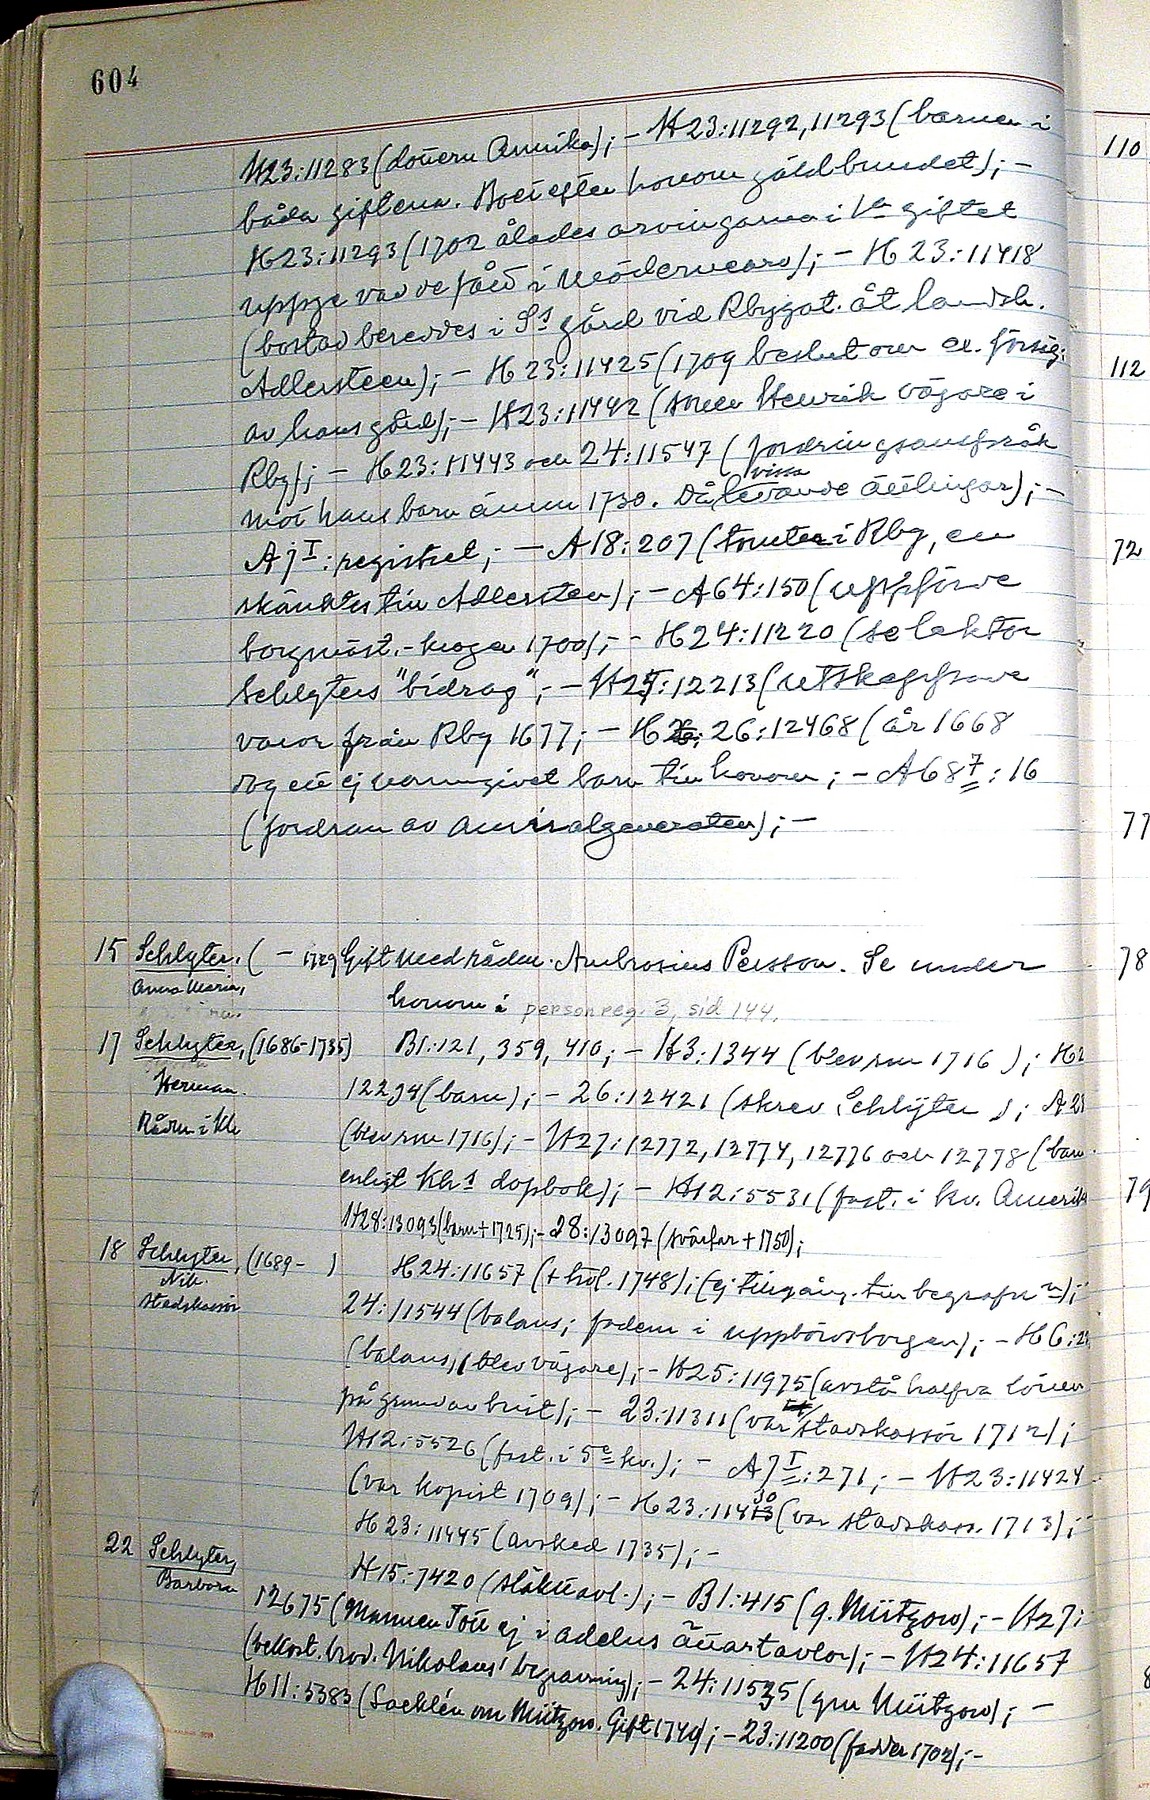 604
H23:11283 (dottern Annika); – H23:11292, 11293 (barnen i
båda giftena. Boet efter honom gäldbundet); –
H23:11293 (1702 ålades arvingarna i 1a giftet
uppge vad de fått i mödernearv); – H23:11418
(bostad bereddes i Ss gård vid Rbygat. åt landsh.
Adlersteen); – H23:11425 (1709 beslut om ex. försälj:
av hans gård); – H23:11442 (sonen Henrik vägare i
Rby); – H23:11443 och 24:11547 (fordringsanspråk
mot hans barn ännu 1730. Då vissa levande ättlingar); –
A7I: registret; – A18:207 (tomter i Rby, en
skänktes till Adlersten); – A64:150 (uppförde
borgmäst.-krogen 1700); – H24:11220 (se lektor
Schlyters "bidrag"; – H25:12213 (utskeppade
varor från Rby 1677; – H 26:12468 (år 1668
dog ett ej namngivet barn till honom; – A687:16
(fordran av amiralgeneralen); –
15 Schlyter, ( – 1729 Gift med rådm. Ambrosius Persson. Se under
Anna Maria,
honom i personreg. 3, sid 144.
17 Schlyter, (1686-1735) B1:121, 359, 410; – H3:1344 (blev rm 1716); H2
Herman. 12234 (barn); – 26:12421 (skrev Schlyter); A28
Rådm i Kh (blev rm 1716); – H27:12772, 12774, 12776 och 12778 (barn
enligt Khs dopbok); – H12:5531 (fast. i kv. Amerik
H28:13093 (barn + 1725); – 28:13097 (svärfar + 1750);
18 Schlyter, (1689- ) H24:11657 (+ 1748); (ej tillgång. till begrafn); –
Nik.
Stadskassör 24:11544 (balans; fadern i uppbördsborgen); – H6:2
(balans, blev vägare); – H25:11975 (avstå halfva lönen
på grund av brist); – 23:11311 (var stadskassör 1712);
H12:5526 (fast. i 5e kv.); – A7I:271; – H23:11424
(var kopist 1709); – H23:11430 (var stadskass. 1713); –
H23:11445 (avsked 1735); –
22 Schlyter, H15:7420 (släkttavl.); – B1:415 (g. Mützow); – H27:
Barbara 12675 (Mannen Tott ej i adelns ättartavlor); – H24:11657
(bekost. brod. Nikolaus' begravning); – 24:11535 (gm Mützow); –
H11:5383 (Sacklén om Mützow. Gift 1740); – 23:11200 (fadder 1702); –
110
112
72
77
78
79
8